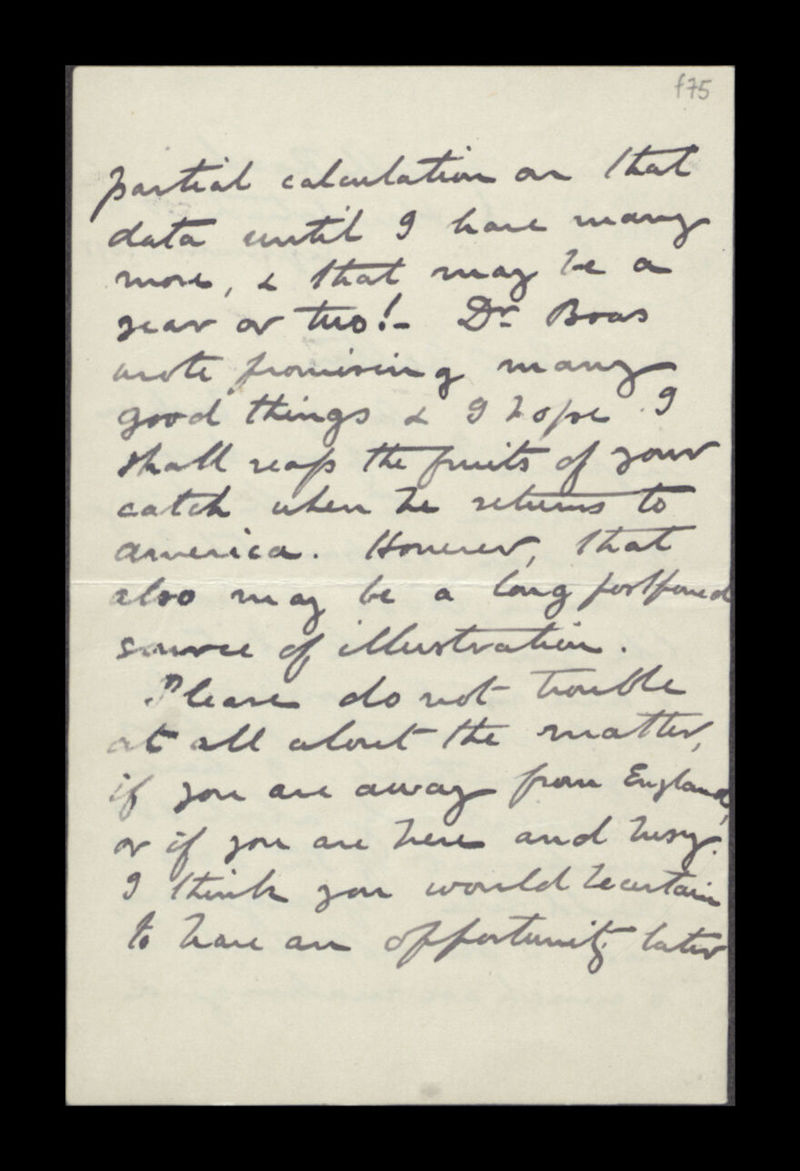 f75
partial calculation on that
data until I have many
more, & that may be a
year or two! - Dr Boas
wrote promising many
good things & I hope I
shall reap the fruits of your
catch when he returns to
America. However, that
also may be a long postponed
source of illustration.
Please do not trouble
at all about the matter,
if you are away from England,
or if you are here and busy.
I think you would be certain
to have an opportunity later